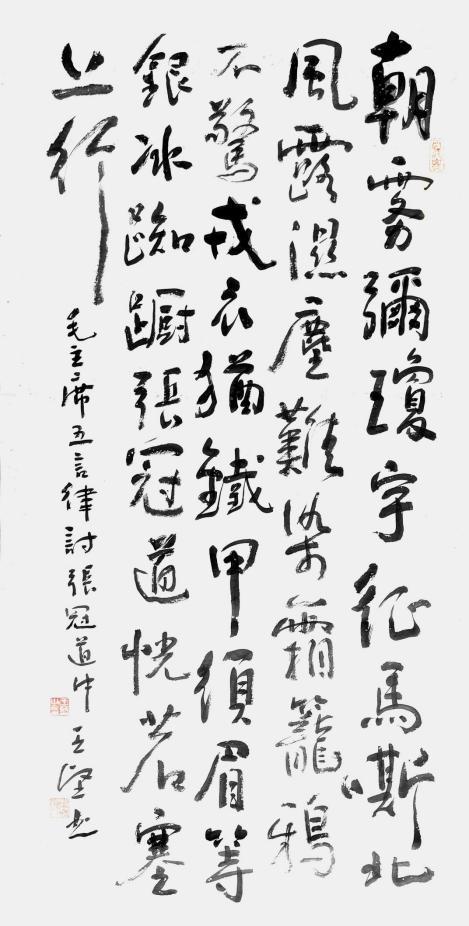 朝雾彌瓊宇征馬嘶北
風露濕塵難染霜籠鴉
不驚戎衣猶鐵甲須眉等
銀冰踟躕張冠道恍若塞
上行
毛主席五言律詩張冠道中 王堅書